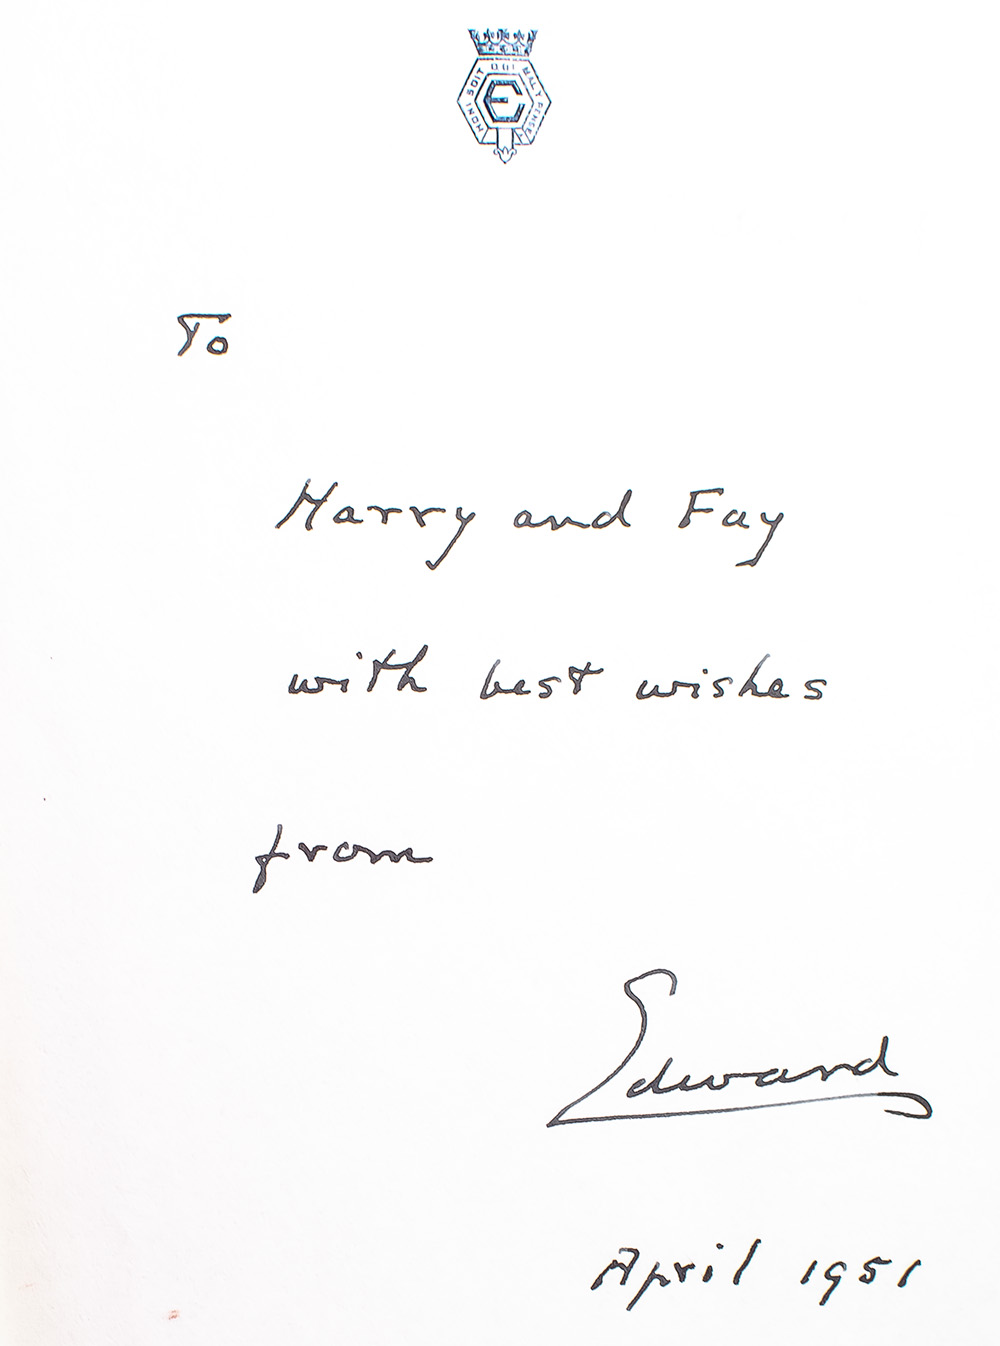 HONI SOIT QUI MAL Y PENSE
E
To
Harry and Fay
with best wishes
from
Edward
April 1951